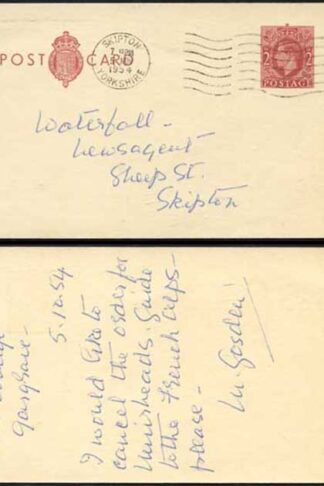 POST CARD
SKIPTON
1954
YORKSHIRE
2 2
POSTAGE
Waterfall -
Newsagent
Sheep St.
Skipton
Gargrave -
5.10.54
I would like to
cancel the order for
Muirheads Guide
to the French Alps -
please -
M Gosden